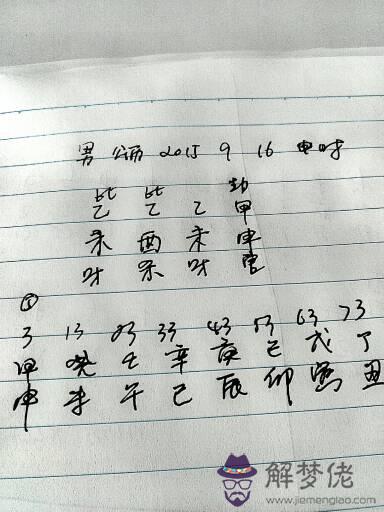 男 公历 2015 9 16 申时
比 比 劫
乙 乙 乙 甲
未 酉 未 申
才 杀 才 官
③
3 13 23 33 43 53 63 73
甲 癸 壬 辛 庚 己 戊 丁
申 未 午 巳 辰 卯 寅 丑
解梦佬
www.jiemenglao.com